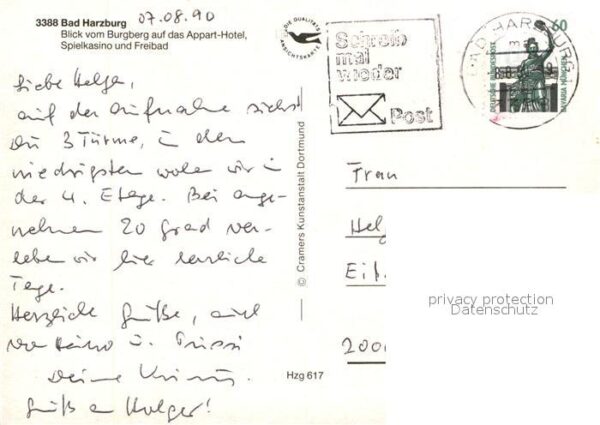 3388 Bad Harzburg 07.08.90
Blick vom Burgberg auf das Appart-Hotel,
Spielkasino und Freibad
DIE QUALITÄTS
ANSICHTSKARTE
Schreib
mal
wieder
Post
BAD HARZBURG
60
DEUTSCHE BUNDESPOST
BAVARIA MÜNCHEN
Liebe Helga,
auf der Aufnahme siehst
Du 3 Türme, in den
niedrigsten wohnen wir in
der 4. Etage. Bei ange-
nehmen 20 Grad ver-
leben wir hier herrliche
Tage.
Herzliche Grüße, auch
von
Deine
Gruß an Holger!
© Cramers Kunstanstalt Dortmund
Hzg 617
Frau
Helg
Eif
200
privacy protection
Datenschutz